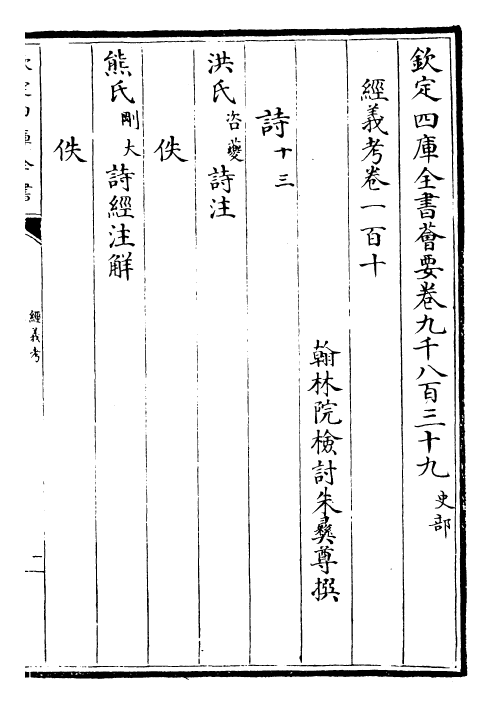 欽定四庫全書薈要卷九千八百三十九 史部
經義考卷一百十
翰林院檢討朱彝尊撰
詩十三
洪氏咨夔詩注
佚
熊氏剛大詩經注解
佚
經義考